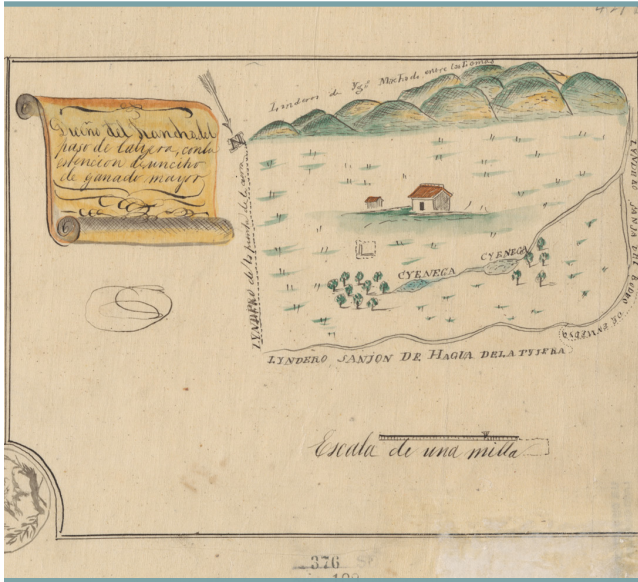 Diseño del Rancho del
paso de la tyera, con la
estencion de un citio
de ganado mayor
Lindero de Ygº Machado entre las lomas
LYNDERO de la punta de la
CYENEGA
CYENEGA
LYNDERO SANJA DEL
LYNDERO SANJON DE HAGUA DE LA TYJERA
Escala de una milla
376